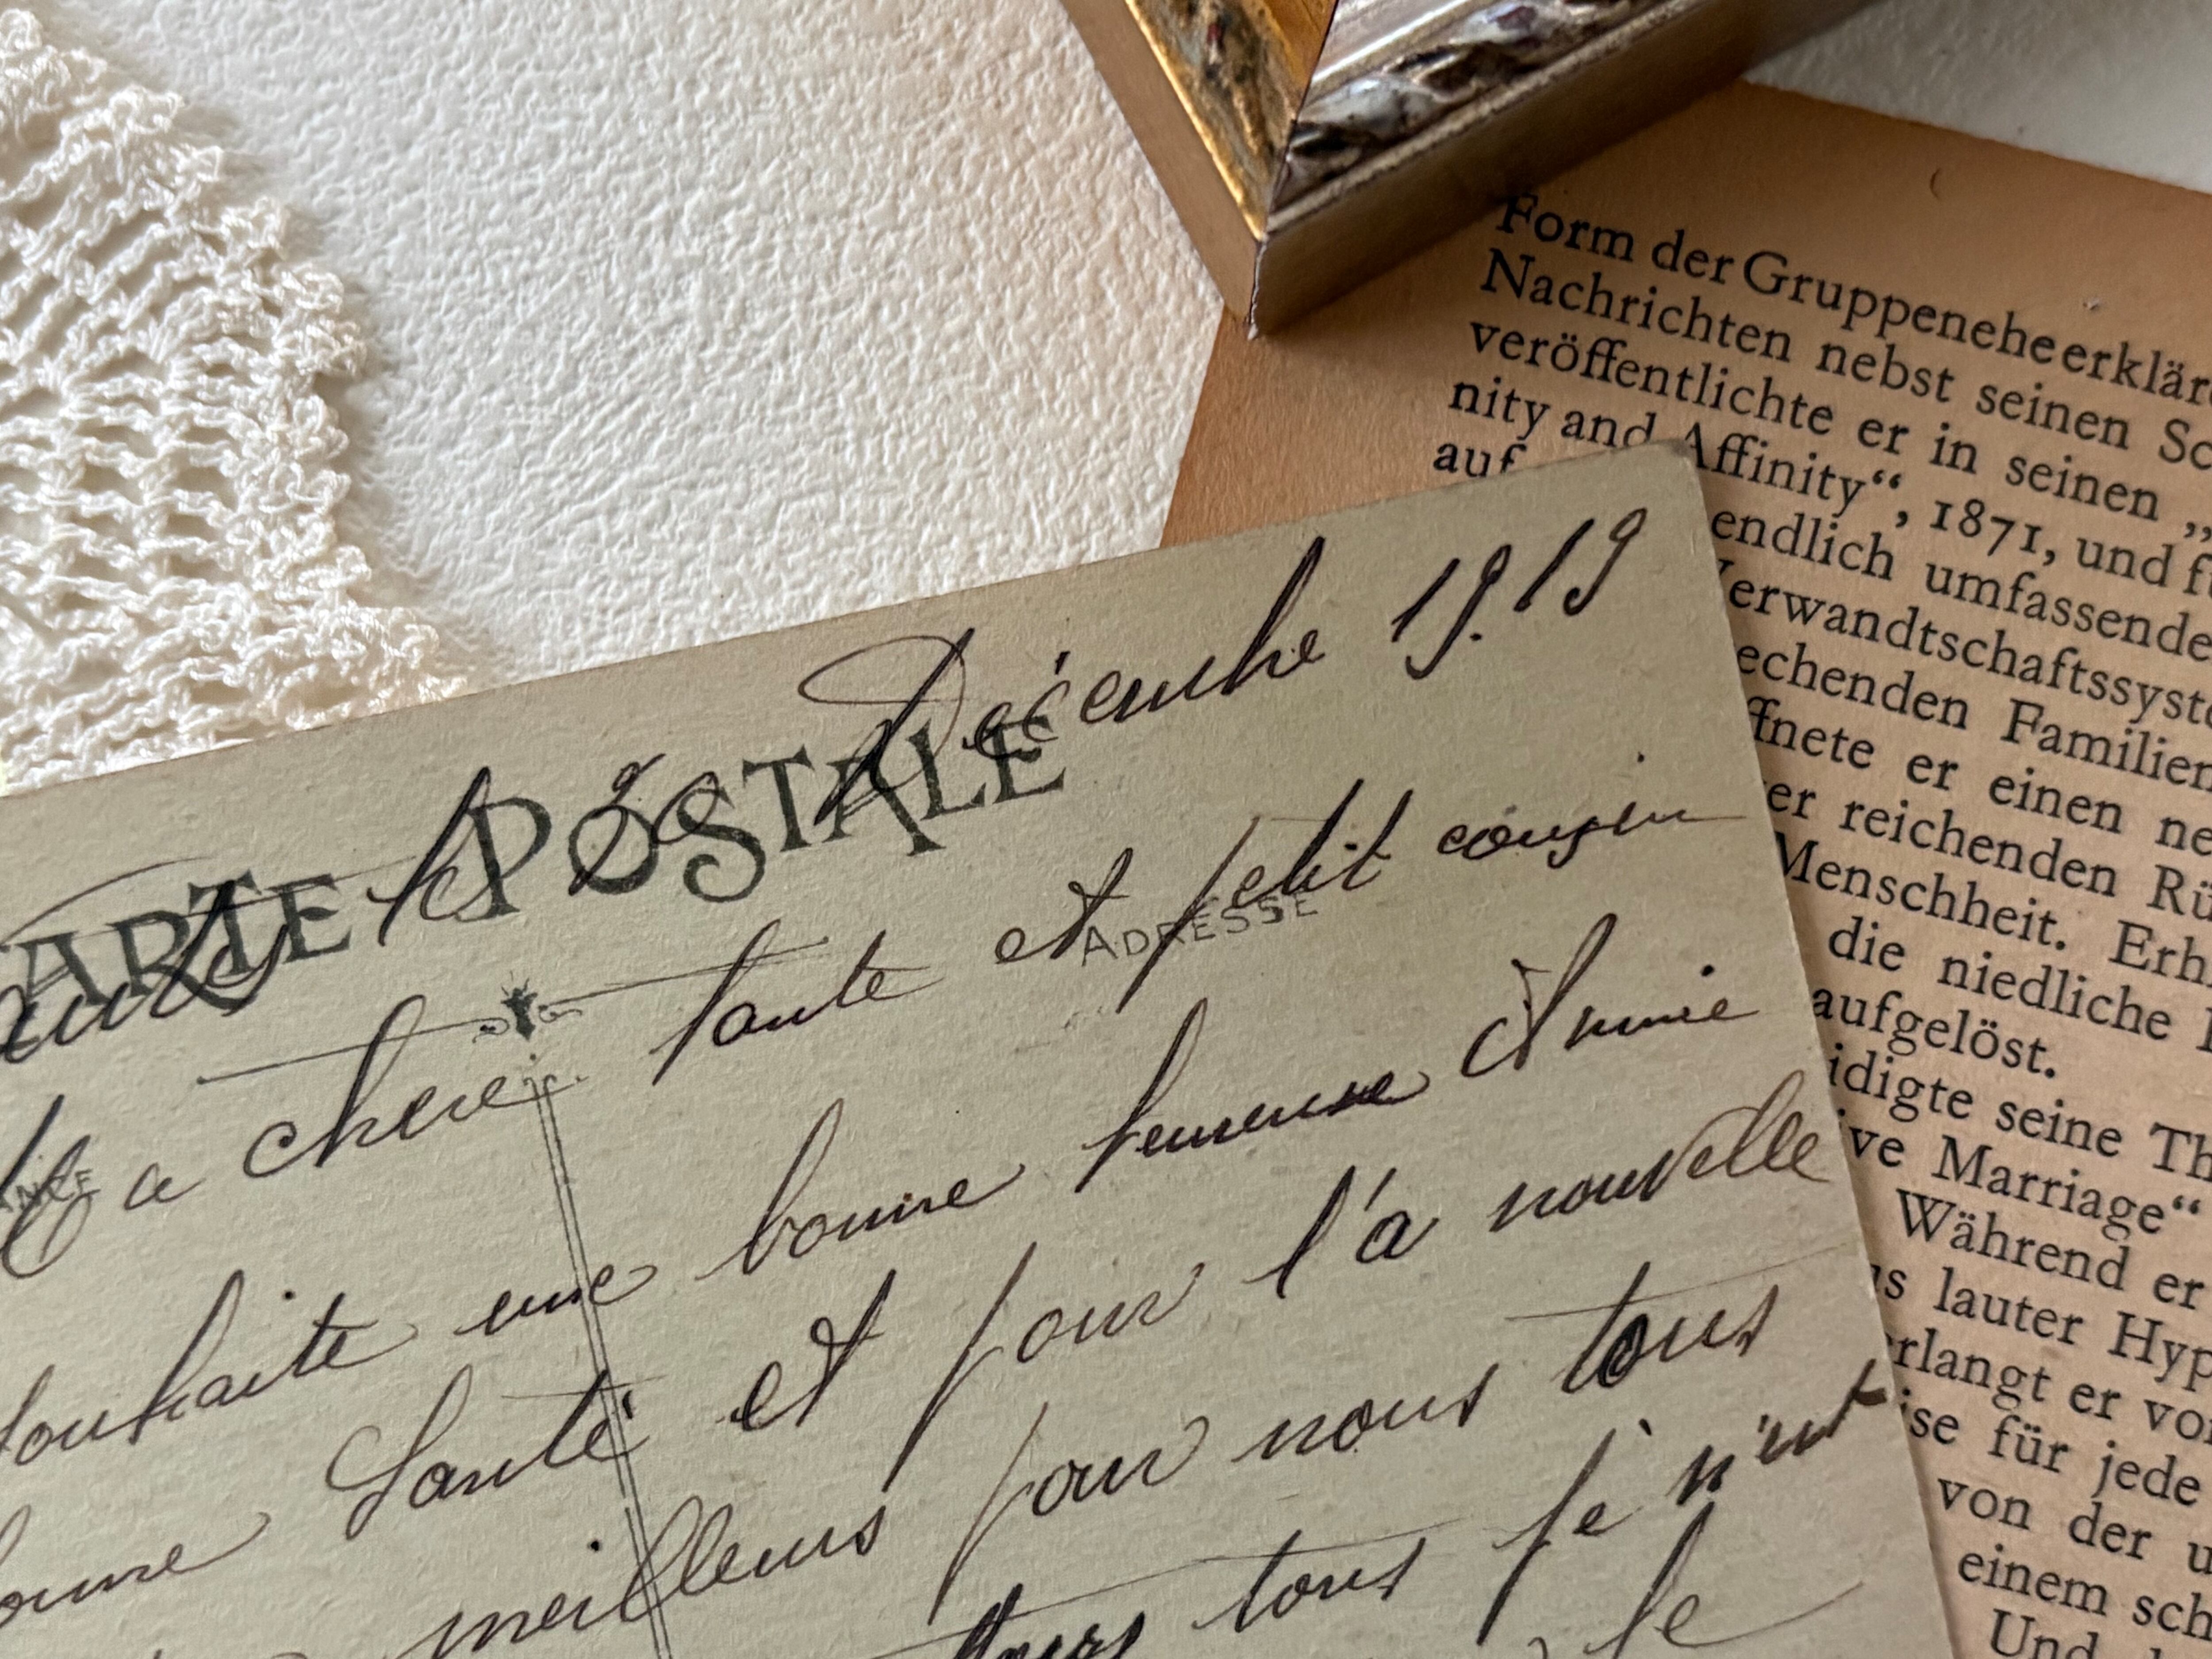 Décembre 1919
ARTE POSTALE
le 20
a chere tante et petit cousin
ADRESSE
souhaite une bonne heureuse Année
bonne Santé et pour l'a nouvelle
meilleurs pour nous tous
tous je n'ut
je
Form der Gruppenehe erklär
Nachrichten nebst seinen Sc
veröffentlichte er in seinen „
nity and Affinity“, 1871, und f
auf
endlich umfassende
erwandtschaftssyst
echenden Familien
ffnete er einen ne
er reichenden Rü
Menschheit. Erh
die niedliche
aufgelöst.
idigte seine Th
ive Marriage“
Während er
s lauter Hyp
rlangt er vo
ise für jede
von der u
einem sch
Und